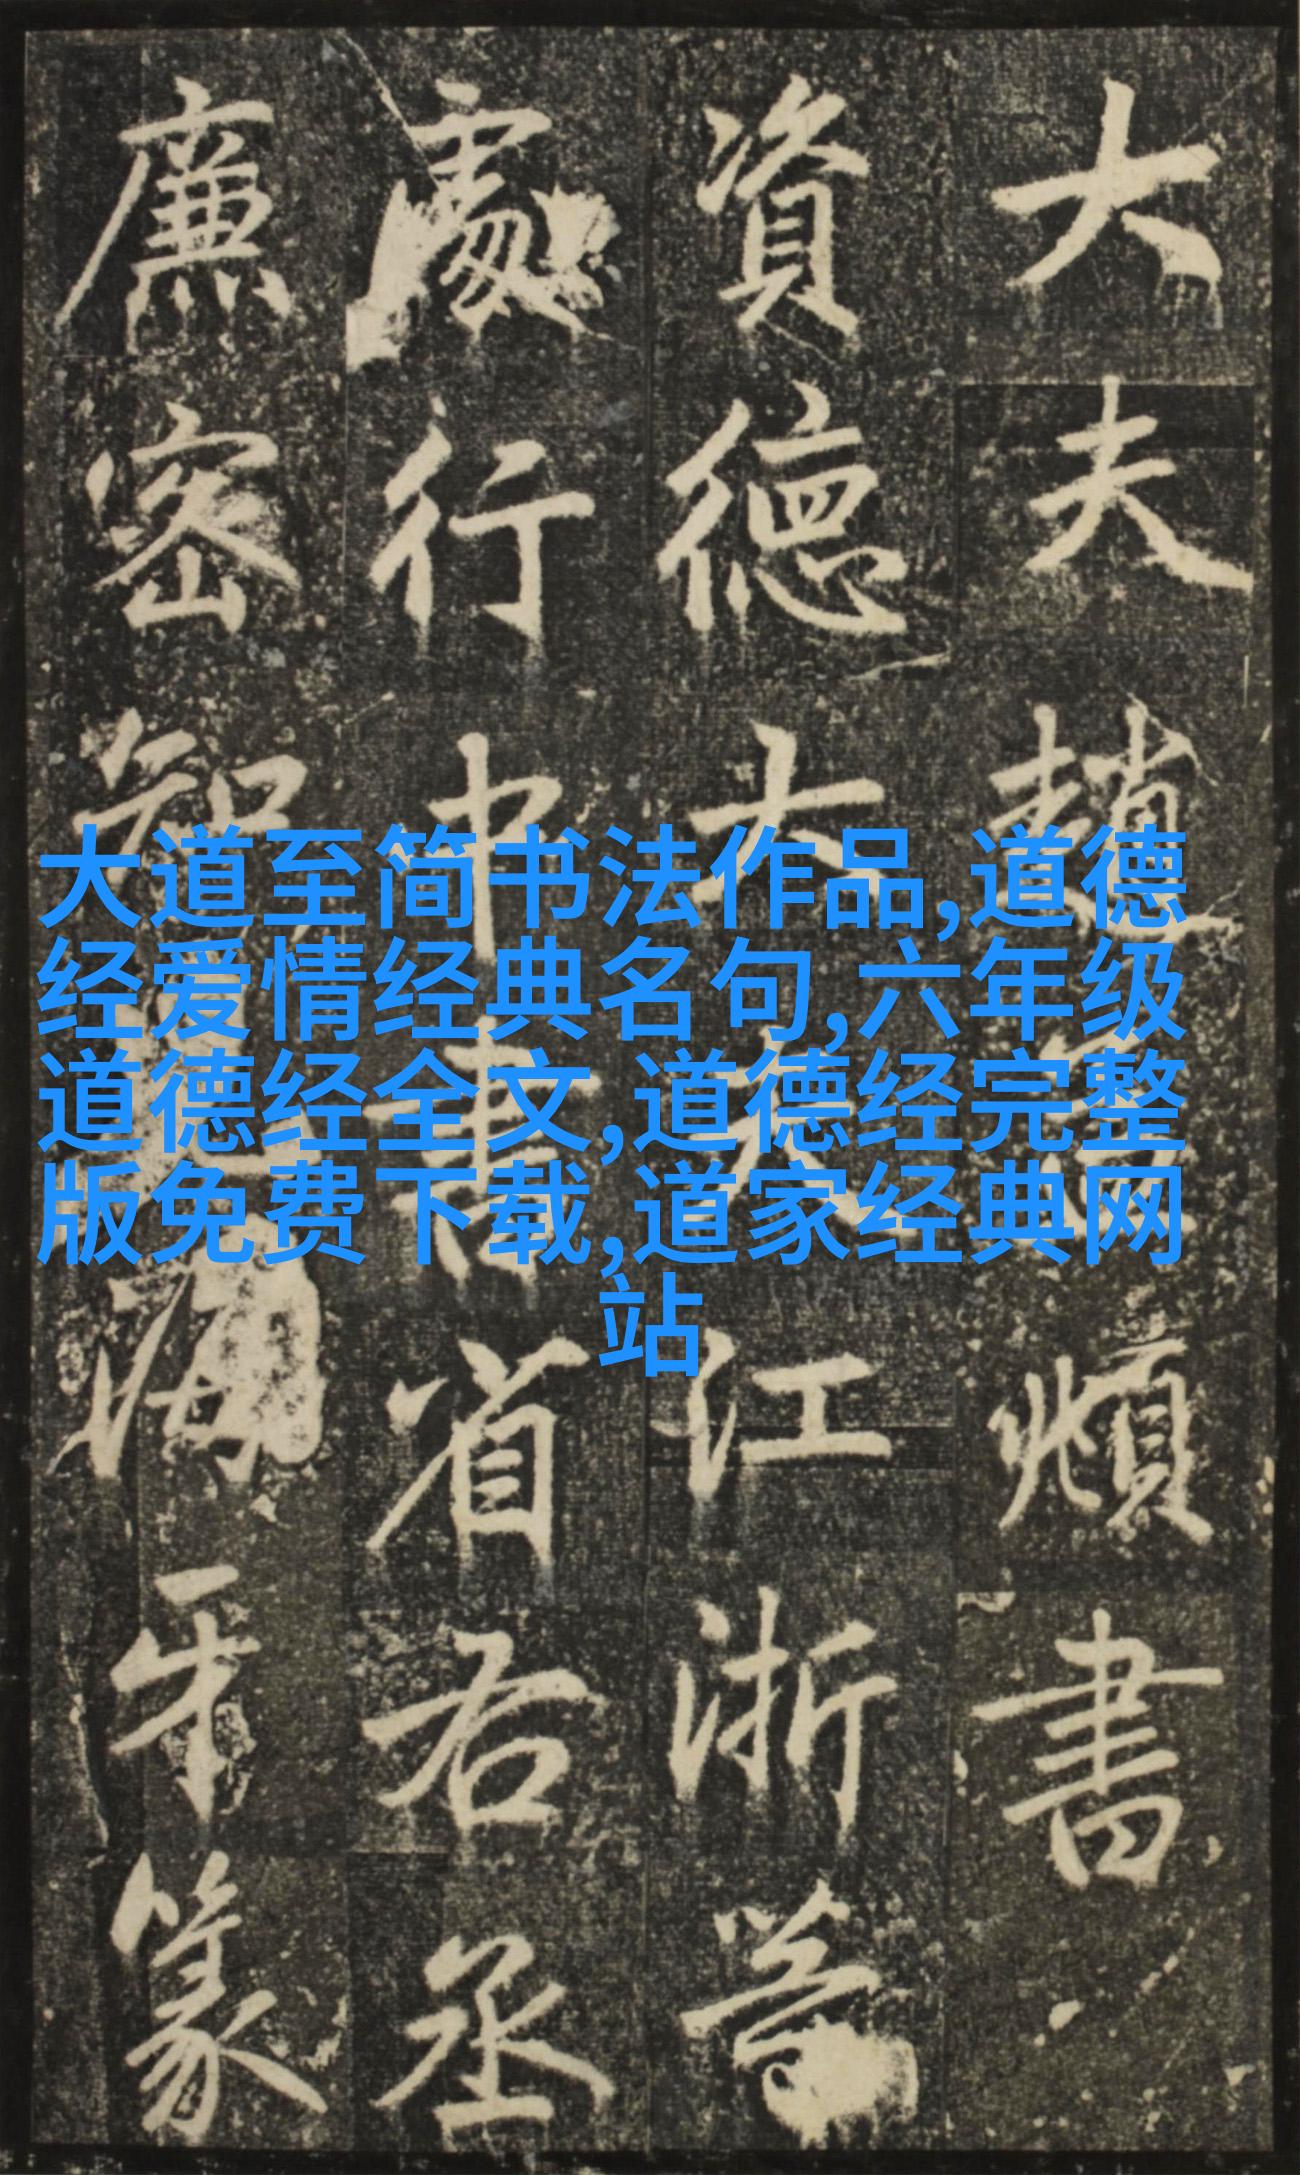 大夫趙孟頫書
資德大夫江浙等
處行中書省右丞
廉密知海牙篆
大道至简书法作品,道德
经爱情经典名句,六年级
道德经全文,道德经完整
版免费下载,道家经典网
站